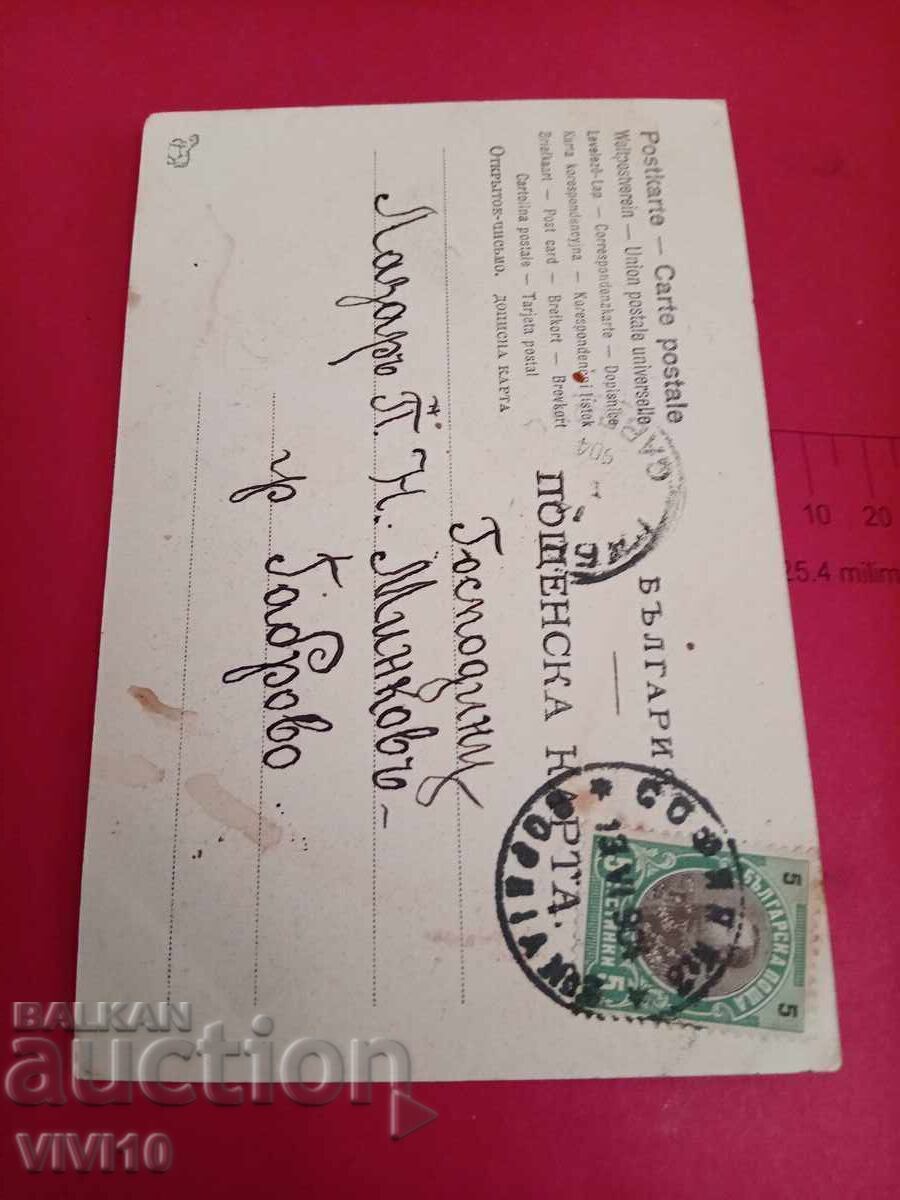 Postkarte — Carte postale
Weltpostverein — Union postale universelle
Levelező-Lap — Correspondenzkarte — Dopisnice
Karta korespondencyjna — Korespondenční lístek
Briefkaart — Post card — Brefkort — Brevkort
Cartolina postale — Tarjeta postal
ОТКРЫТОЕ ПИСЬМО. ДОПИСНА КАРТА
БЪЛГАРИЯ
ПОЩЕНСКА КАРТА.
Господину
Лазаръ П. Н. Минковъ-
гр Габрово.
СОФИЯ
13 VI
5 БЪЛГАРСКА ПОЩА 5
5 СТОТИНКИ 5
10 20
25.4 milim
BALKAN
auction
VIVI10